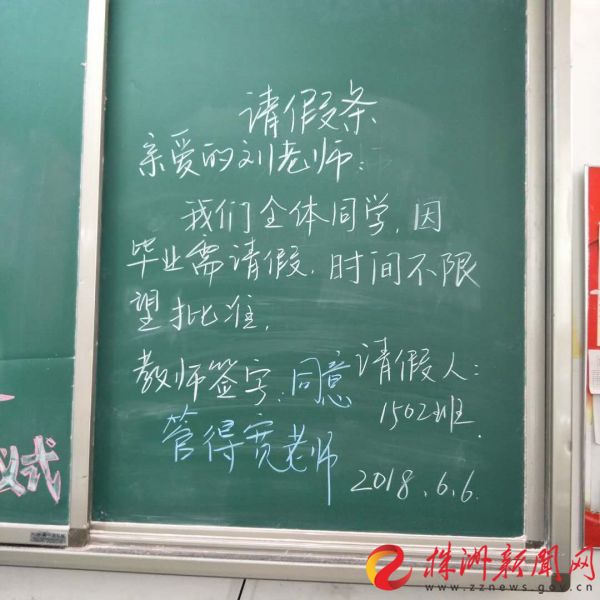 请假条
亲爱的刘老师：
我们全体同学，因
毕业需请假，时间不限
望批准，
教师签字：同意
管得宽老师
请假人：
1502班．
2018．6.6．
仪式
株洲新闻网
www.zznews.gov.cn